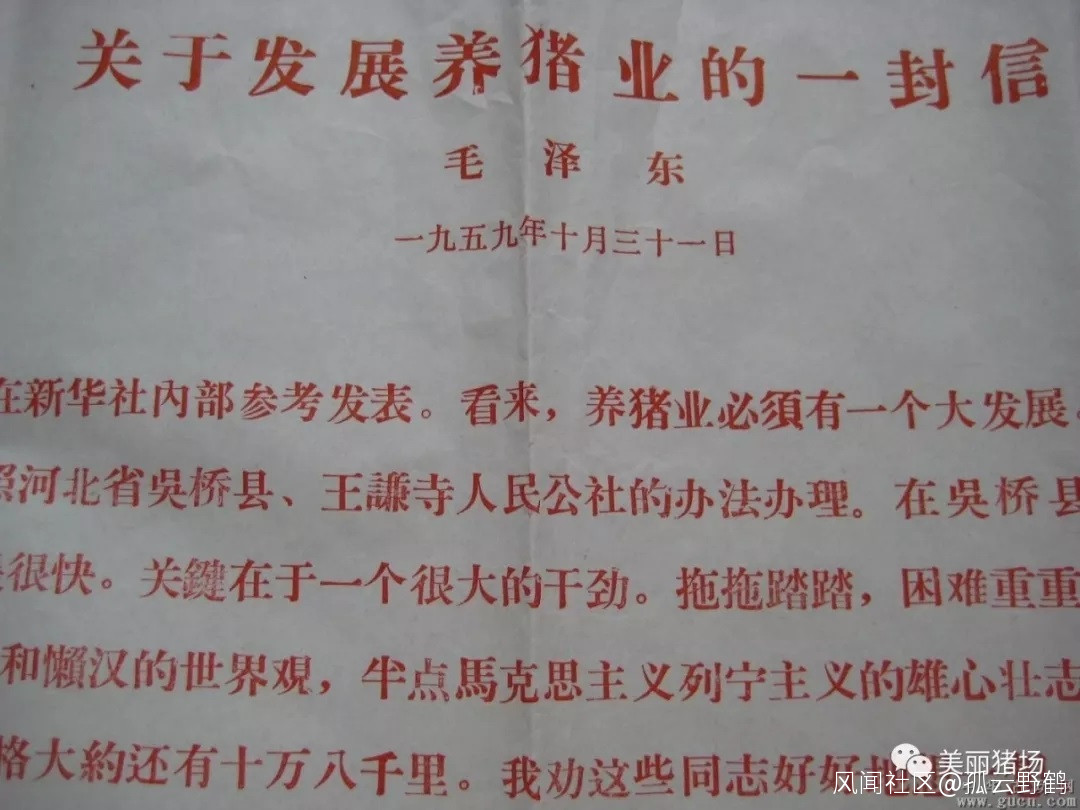 关于发展养猪业的一封信
毛泽东
一九五九年十月三十一日
在新华社內部参考发表。看来，养猪业必須有一个大发展。
照河北省吳桥县、王謙寺人民公社的办法办理。在吳桥县
很快。关鍵在于一个很大的干劲。拖拖踏踏，困难重重
和懒汉的世界观，半点馬克思主义列宁主义的雄心壮志
格大約还有十万八千里。我劝这些同志好好
美丽猪场
风闻社区@孤云野鹤
www.gucn.com